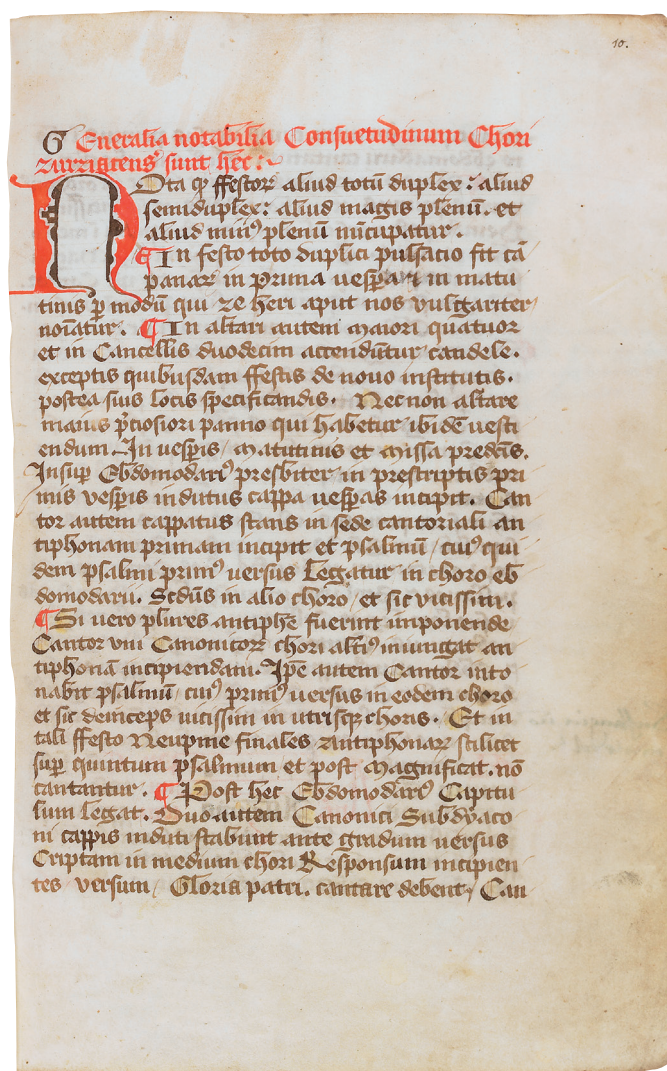 10.
GEneralia notabilia Consuetudinum Chori
zurzigtens' sunt hec:
NOta qꝫ ffestoꝝ aliud totū duplex: aliud
semiduplex: aliud magis plenū. et
aliud min9 plenū nūcupatur.
¶ In festo toto duplici pulsacio fit cā
panaꝝ in prima vesꝑarū in matu
tinis ꝑ modū qui ze heri aput nos vulgariter
noīatur. ¶ In altari autem maiori quatuor
et in Cancellis duodecim accendūtur candele.
exceptis quibusdam ffestis de nouo institutis.
postea suis locis specificandis. Nec non altare
maius p̄ciosiori panno qui habetur ibidē uesti
endum. In vesꝑis, Matutinis et Missa predc̄is.
Insuꝑ Ebdomodari9 presbiter in prescriptis pri
mis vesꝑis indutus cappa uesꝑas incipit. Can
tor autem cappatus stans in sede cantoriali an
tiphonam primam incipit et psalmū, cui9 qui
dem psalmi prim9 uersus Legatur in choro eb
domodarii. Scdus in alio choro, et sic vicissim.
¶ Si uero plures antiphē fuerint imponende
Cantor vni Canonicoꝝ chori alti9 iniungat an
tiphonā incipiendam. Ipē autem Cantor into
nabit psalmū, cui9 prim9 uersus in eodem choro
et sic deinceps uicissim in utrisqꝫ choris. Et in
tali ffesto Neupme finales Antiphonaꝝ scilicet
suꝑ quintum psalmum et post Magnificat. nō
cantantur. ¶ Post hec Ebdomodari9 Capitu
lum legat. Duo autem Canonici Subdyaco
ni cappis induti stabunt ante gradum uersus
Criptam in medium chori Responsum incipien
tes versum, Gloria patri. cantare debent, Can